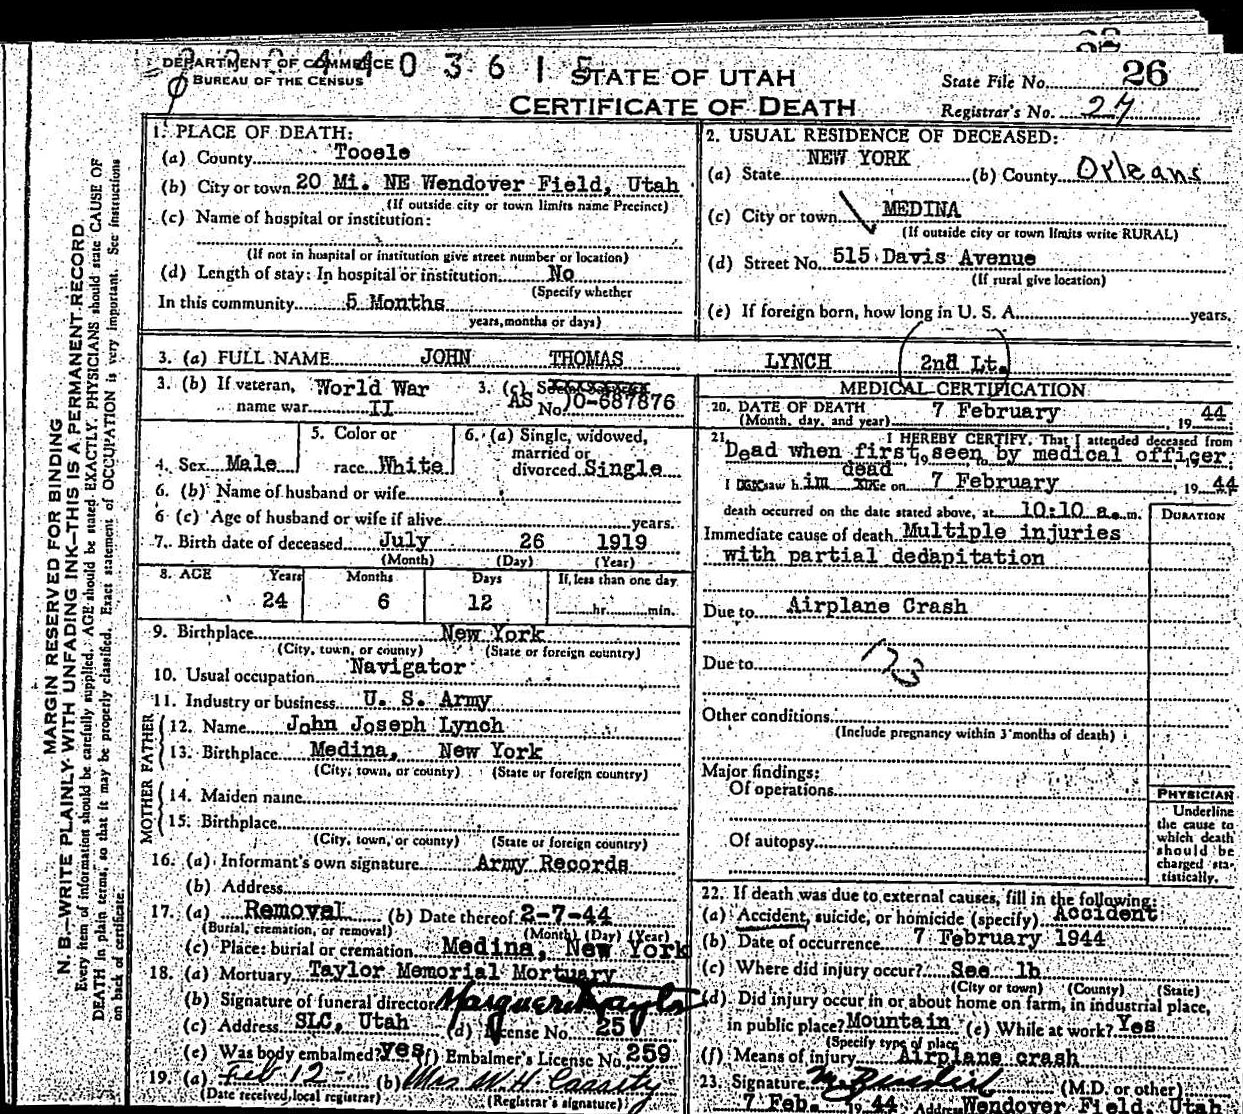 DEPARTMENT OF COMMERCE
BUREAU OF THE CENSUS
STATE OF UTAH
CERTIFICATE OF DEATH
State File No. 26
Registrar's No. 27
MARGIN RESERVED FOR BINDING
N. B.—WRITE PLAINLY WITH UNFADING INK—THIS IS A PERMANENT RECORD
Every item of information should be carefully supplied. AGE should be stated EXACTLY. PHYSICIANS should state CAUSE OF
DEATH in plain terms, so that it may be properly classified. Exact statement of OCCUPATION is very important. See instructions
on back of certificate.
1. PLACE OF DEATH:
(a) County Tooele
(b) City or town 20 Mi. NE Wendover Field, Utah
(If outside city or town limits name Precinct)
(c) Name of hospital or institution:
(If not in hospital or institution give street number or location)
(d) Length of stay: In hospital or institution No
(Specify whether
In this community 5 Months
years, months or days)
2. USUAL RESIDENCE OF DECEASED:
(a) State NEW YORK (b) County Orleans
(c) City or town MEDINA
(If outside city or town limits write RURAL)
(d) Street No. 515 Davis Avenue
(If rural give location)
(e) If foreign born, how long in U. S. A. years.
3. (a) FULL NAME JOHN THOMAS LYNCH 2nd Lt.
3. (b) If veteran, name war World War II
3. (c) AS No. O-687876
4. Sex Male
5. Color or race White
6. (a) Single, widowed, married or divorced Single
6. (b) Name of husband or wife
6 (c) Age of husband or wife if alive years.
7. Birth date of deceased July 26 1919
(Month) (Day) (Year)
8. AGE Years Months Days If less than one day
24 6 12 hr. min.
9. Birthplace New York
(City, town, or county) (State or foreign country)
10. Usual occupation Navigator
11. Industry or business U. S. Army
FATHER
12. Name John Joseph Lynch
13. Birthplace Medina, New York
(City, town, or county) (State or foreign country)
MOTHER
14. Maiden name
15. Birthplace
(City, town, or county) (State or foreign country)
16. (a) Informant's own signature Army Records
(b) Address
17. (a) Removal (b) Date thereof 2-7-44
(Burial, cremation, or removal) (Month) (Day) (Year)
(c) Place: burial or cremation Medina, New York
18. (a) Mortuary Taylor Memorial Mortuary
(b) Signature of funeral director
(c) Address SLC, Utah (d) License No. 25
(e) Was body embalmed? yes (f) Embalmer's License No. 259
19. (a) Feb 12 (b) Mrs W. H. Cassity
(Date received local registrar) (Registrar's signature)
MEDICAL CERTIFICATION
20. DATE OF DEATH 7 February 1944
(Month, day, and year)
21. I HEREBY CERTIFY, That I attended deceased from
Dead when first seen by medical officer
I saw him dead on 7 February, 1944
death occurred on the date stated above, at 10:10 a.m.
DURATION
Immediate cause of death Multiple injuries
with partial dedapitation
Due to Airplane Crash
Due to 123
Other conditions
(Include pregnancy within 3 months of death)
Major findings:
Of operations
Of autopsy
PHYSICIAN
Underline
the cause to
which death
should be
charged sta-
tistically.
22. If death was due to external causes, fill in the following:
(a) Accident, suicide, or homicide (specify) Accident
(b) Date of occurrence 7 February 1944
(c) Where did injury occur? See 1b
(City or town) (County) (State)
(d) Did injury occur in or about home on farm, in industrial place,
in public place? Mountain (e) While at work? Yes
(Specify type of place
(f) Means of injury Airplane crash
23. Signature (M.D. or other)
7 Feb. 1944 Address Wendover Field, Utah